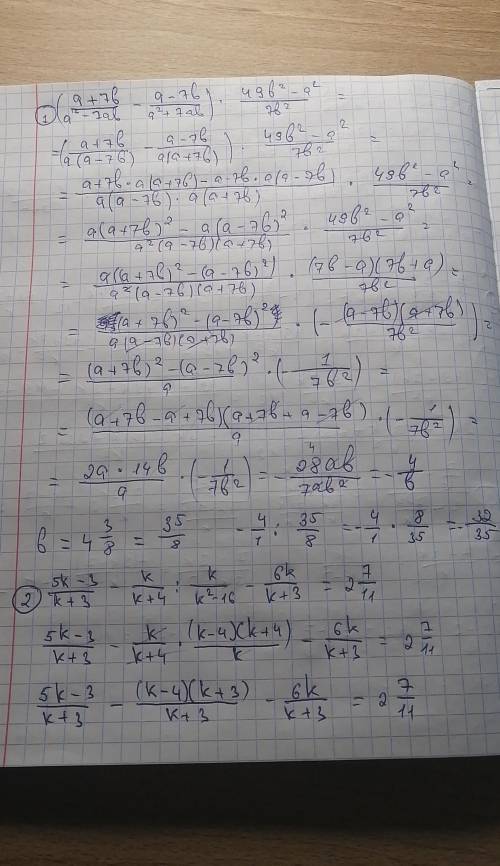 ① (a+7b)/(a²-7ab) - (a-7b)/(a²+7ab)) · (49b²-a²)/(7b²) =
=((a+7b)/(a(a-7b)) - (a-7b)/(a(a+7b))) · (49b²-a²)/(7b²) =
= (a+7b·a(a+7b)-a-7b·a(a-7b))/(a(a-7b)·a(a+7b)) · (49b²-a²)/(7b²) =
= (a(a+7b)²-a(a-7b)²)/(a²(a-7b)(a+7b)) · (49b²-a²)/(7b²) =
= (a(a+7b)²-(a-7b)²)/(a²(a-7b)(a+7b)) · ((7b-a)(7b+a))/(7b²) =
= ((a+7b)²-(a-7b)²)/(a(a-7b)(a+7b)) · (-((a-7b)(a+7b))/(7b²)) =
= ((a+7b)²-(a-7b)²)/a · (-1/(7b²)) =
= ((a+7b-a+7b)(a+7b+a-7b))/a · (-1/(7b²)) =
= (2a·14b)/a · (-1/(7b²)) = -(28ab)/(7ab²) = -4/b
b = 4 3/8 = 35/8 -4/1 : 35/8 = -4/1 · 8/35 = -32/35
② (5k-3)/(k+3) - k/(k+4) : k/(k²-16) - 6k/(k+3) = 2 7/11
(5k-3)/(k+3) - k/(k+4) · ((k-4)(k+4))/k - 6k/(k+3) = 2 7/11
(5k-3)/(k+3) - ((k-4)(k+3))/(k+3) - 6k/(k+3) = 2 7/11